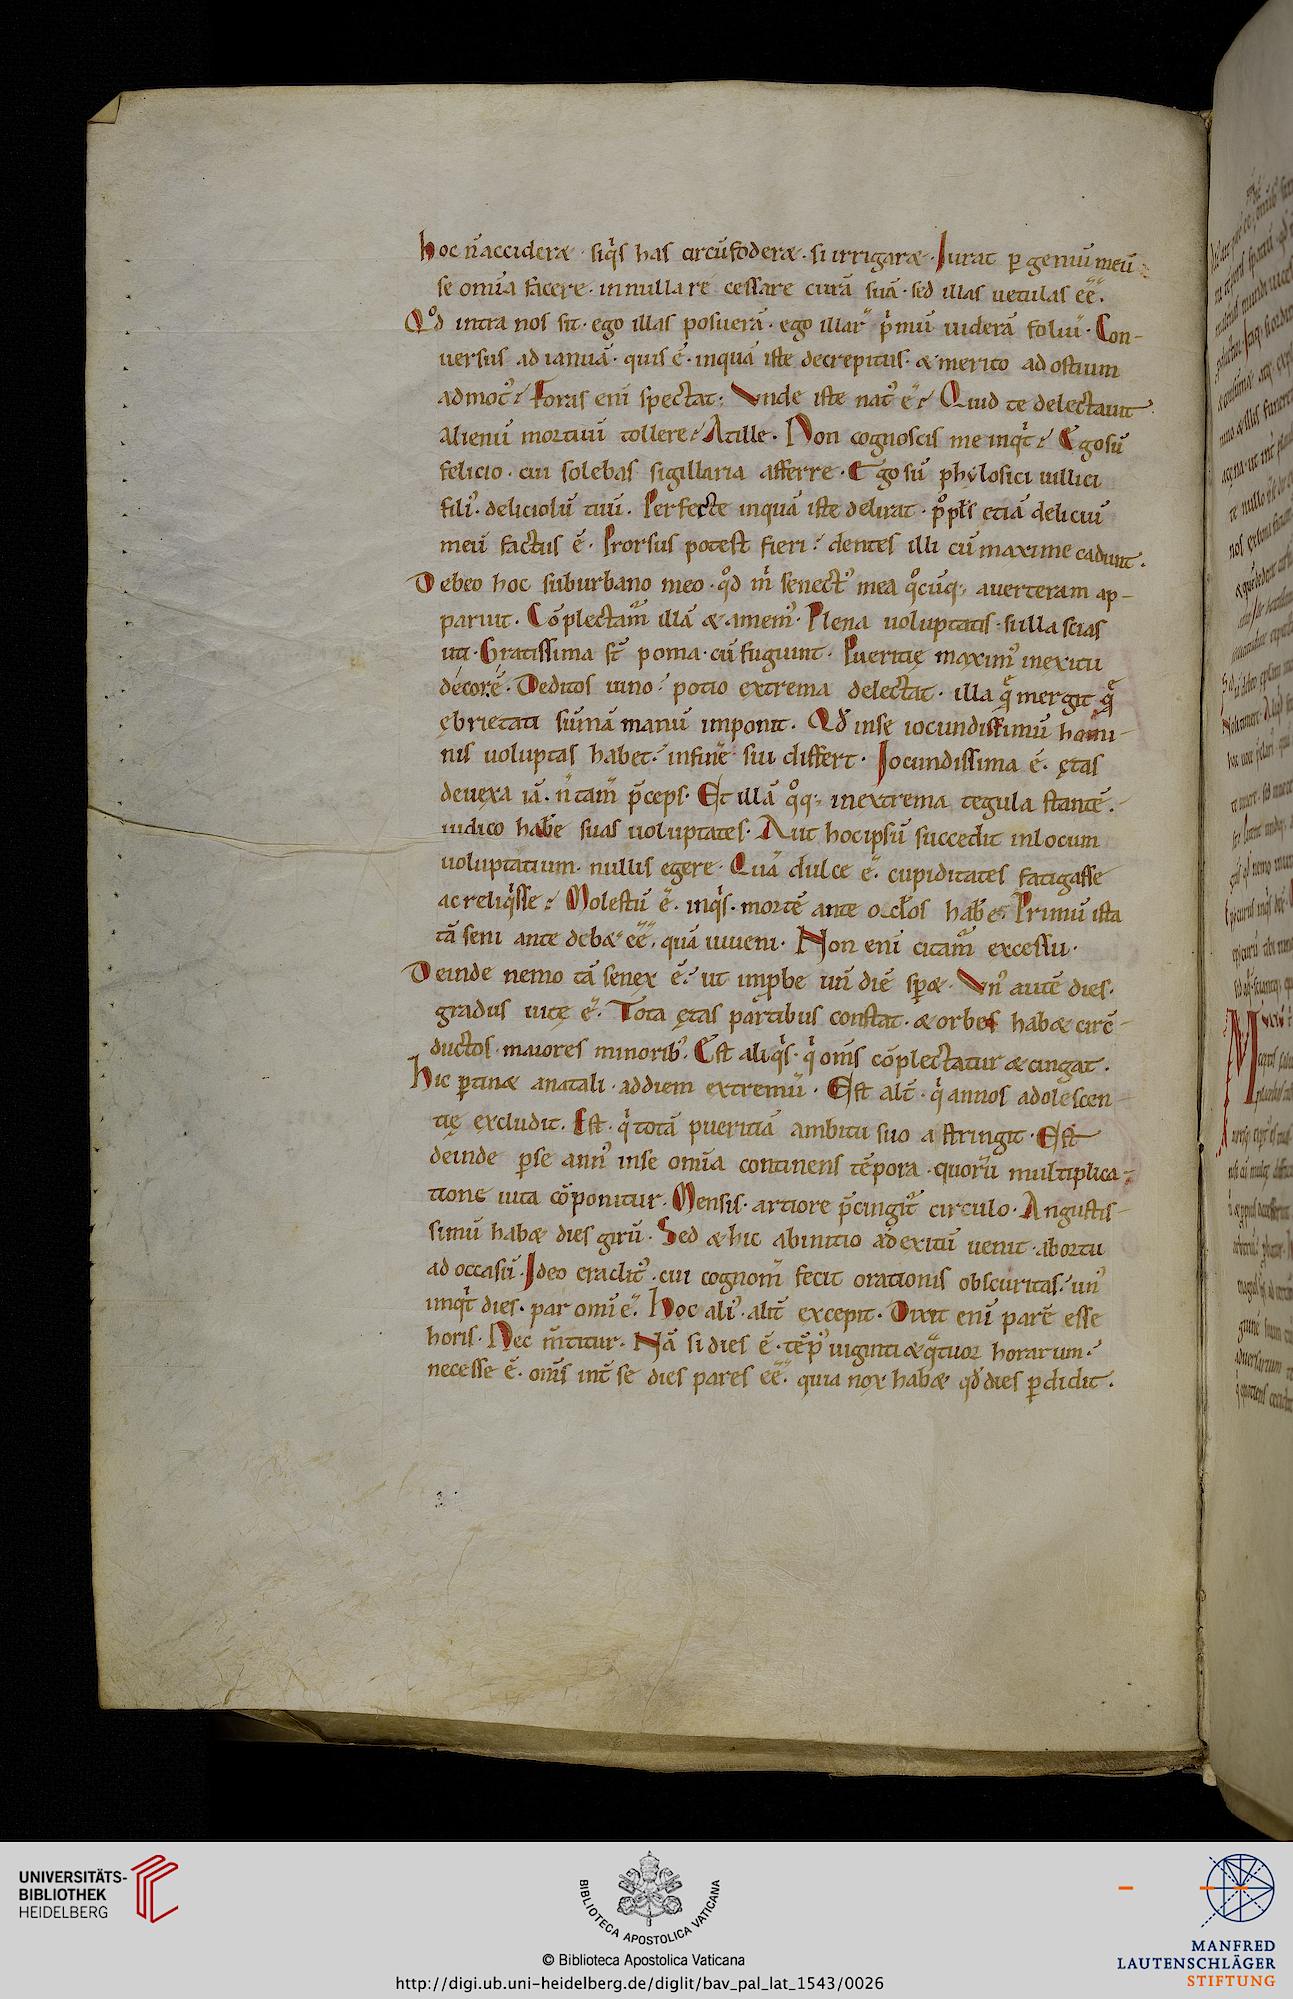 hoc n̄ accideræ · siq̍s has circūfoderæ · si irrigaræ · Iurat ꝑ geniū meū
se om̄ia facere · in nulla re cessare curā suā · sed illas uetulas ēē.
Qd̊ intra nos sit · ego illas posuerā · ego illaꝝ p̍mū uiderā foliū · Con-
uersus ad ianuā · quis ē · inquā iste decrepitus · & merito ad ostium
admot᾽? Foras eni spectat: Vnde iste nat᾽ ē? Quid te delectauit
alienū mortuū tollere? At ille · Non cognoscis me inqͥt? Ego sū
felicio · cui solebas sigillaria afferre · Ego sū phylosici uillici
fili᾽ · deliciolū tuū. Perfecte inquā iste delirat · pͦpl̄s etiā deliciū
meū factus ē · Prorsus potest fieri · dentes illi cū maxime cadunt.
Debeo hoc suburbano meo · qͦd m̍ senect᾽ mea qͦcūq; auerteram ap-
paruit. Cōplectam̄ illā & amem᾽ · Plena uoluptatis · si illa scias
uti · Gratissima st̄ poma · cū fugiunt · Pueritię maxim᾽ in exitu
decor ē · Deditos uino · potio extrema delectat · illa q̄ mergit q̄
ębrietati sūmā manū imponit. Qd̄ in se iocundissimū homi-
nis uoluptas habet · in fine sui differt · Iocundissima ē · ętas
deuexa iā · n̄ tam̄ p̄ceps · Et illā qͦq; in extrema tegula stantē.
iudico habe͞ suas uoluptates · Aut hoc ipsū succedit in locum
uoluptatium · nullis egere · Quā dulce ē · cupiditates fatigasse
ac reliq̍sse? Molestū ē · inq̍s · mortē ante oc̄l̄os habe͞ · Primū ista
tā seni ante debæ ēē, quā iuueni · Non eni citam̄ excessu ·
Deinde nemo tā senex ē · ut imp̱be un̄ diē sꝑæ · Vn᾽ autē dies ·
gradus uitę ē · Tota ętas partibus constat · & orbes habæ circ̄-
ductos · maiores minorib᾽ · Est aliq̍s · q̍ om̄s cōplectatur & cingat.
Hic ꝑtinæ a natali · ad diem extremū · Est alt̄ · q̍ annos adolescen-
tię excludit · Est · q̍ totā pueritiā ambitu suo a stringit · Est
deinde ꝑ se ann᾽ in se om̄ia continens tēpora · quorū multiplica-
tione uita cōponitur · Mensis · artiore p̄cingit᾽ circulo · Angustis-
simū habæ dies girū · Sed & hic ab initio ad exitū uenit · ab ortu
ad occasū · Ideo eraclit᾽ · cui cognom̄ fecit orationis obscuritas · un᾽
inqͥt dies · par om̄i ē · Hoc ali᾽ · alit̄ excepit · Dixit eni parē esse
horis · Nec m̄titur · Nā si dies ē · tēp᾽ uiginti & qͣtuor horarum ·
necesse ē · om̄s int̄ se dies pares ēē · quia nox habæ qd̄ dies ꝑdidit.
UNIVERSITÄTS-
BIBLIOTHEK
HEIDELBERG
BIBLIOTECA APOSTOLICA VATICANA
© Biblioteca Apostolica Vaticana
http://digi.ub.uni-heidelberg.de/diglit/bav_pal_lat_1543/0026
MANFRED
LAUTENSCHLÄGER
STIFTUNG